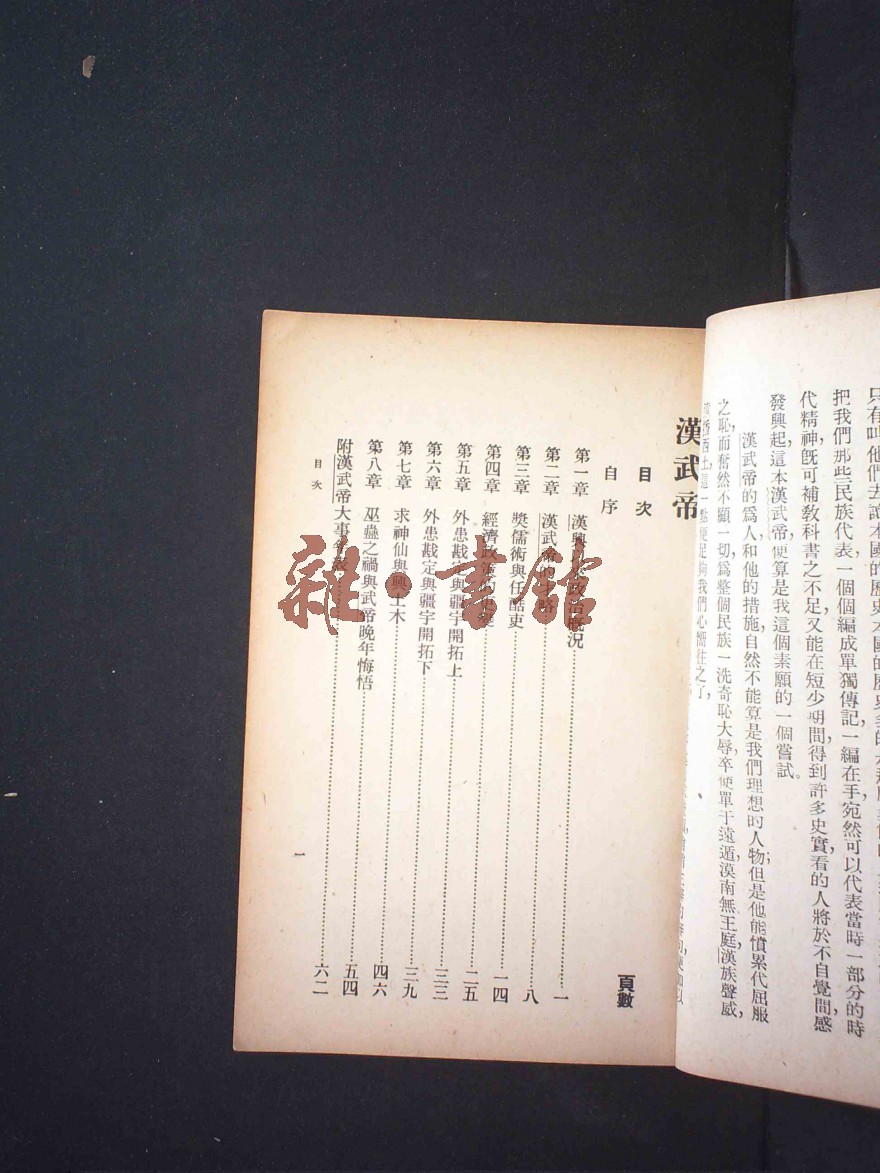 把我們那些民族代表，一個個編成單獨傳記一編在手，宛然可以代表當時一部分的時
代精神，旣可補敎科書之不足，又能在短少時間，得到許多史實，看的人將於不自覺間，感
發興起，這本漢武帝，便算是我這個素願的一個嘗試。
漢武帝的爲人和他的措施，自然不能算是我們理想的人物；但是他能憤累代屈服
之恥，而奮然不顧一切，爲整個民族一洗奇恥大辱，卒使單于遠遁，漠南無王庭，漢族聲威，
這一點便足夠我們心嚮往之了，
漢武帝
目次
頁數
自序
第一章 漢興 政治概況 一
第二章 漢武帝的 略 八
第三章 獎儒術與任酷吏 一四
第四章 經濟政策的 二五
第五章 外患戡定與疆宇開拓上 三三
第六章 外患戡定與疆宇開拓下 三九
第七章 求神仙與興土木 四六
第八章 巫蠱之禍與武帝晚年悔悟 五四
附漢武帝大事年表 六二
目次
一
雜·書館